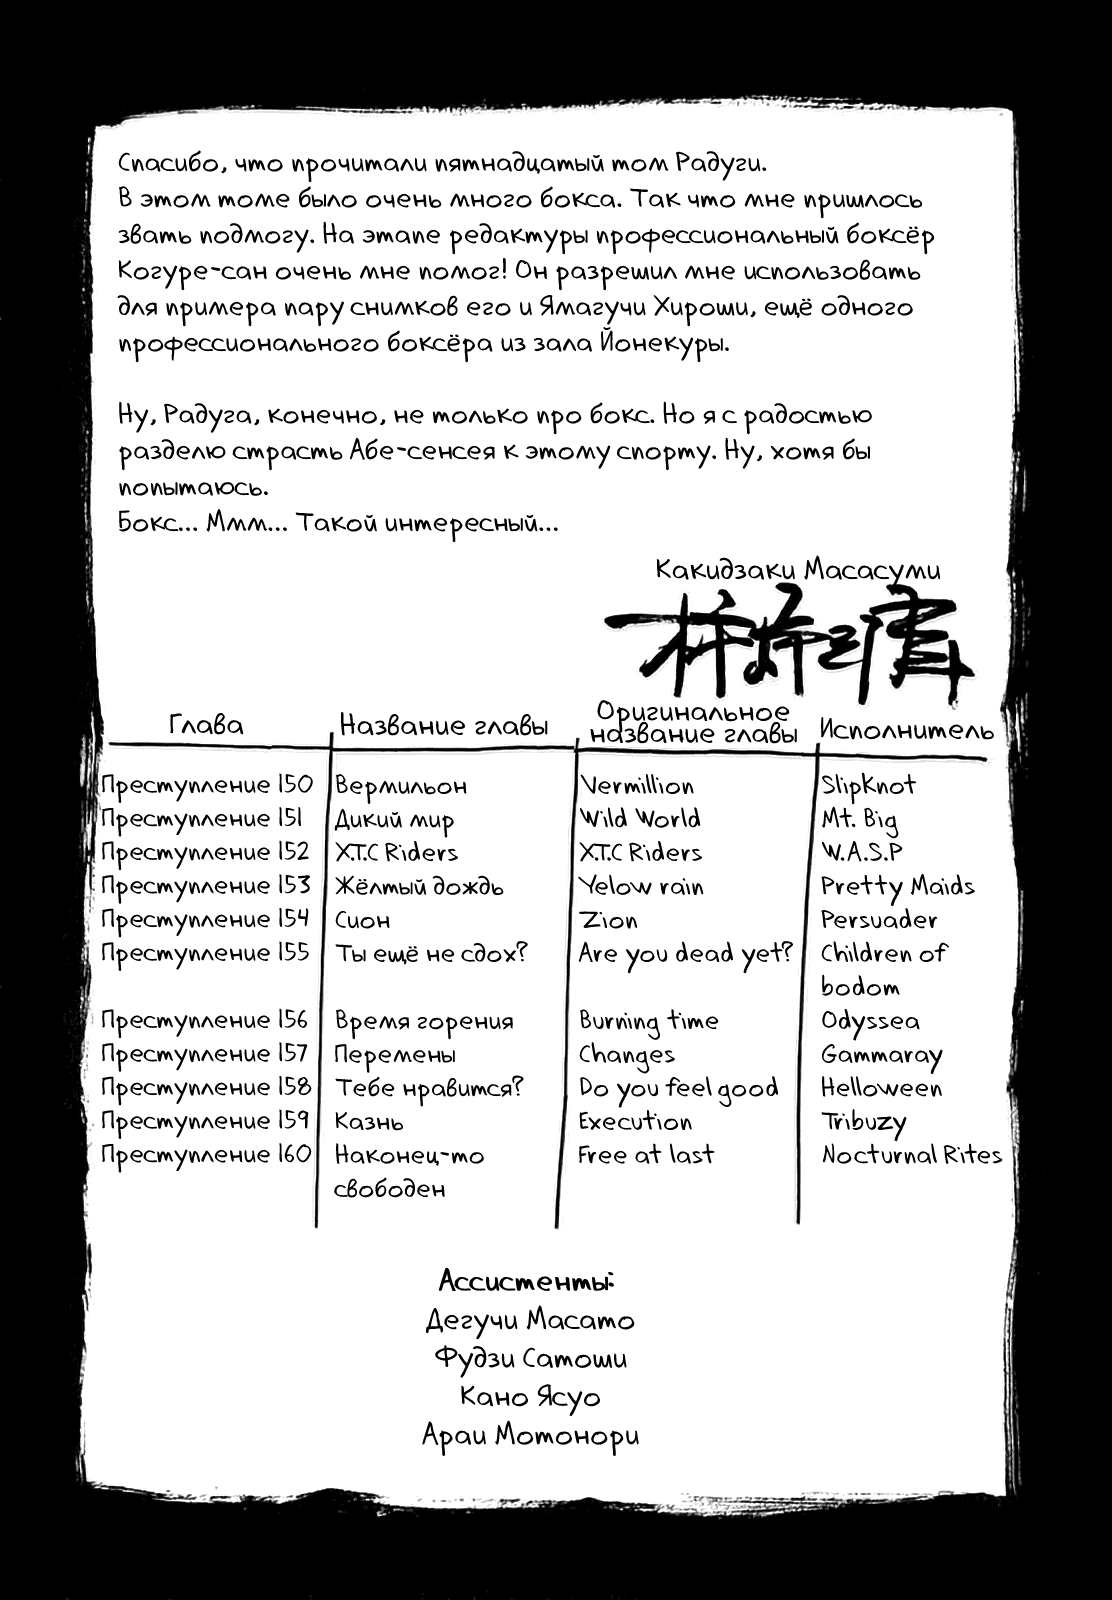 Спасибо, что прочитали пятнадцатый том Радуги.
В этом томе было очень много бокса. Так что мне пришлось
звать подмогу. На этапе редактуры профессиональный боксёр
Когуре-сан очень мне помог! Он разрешил мне использовать
для примера пару снимков его и Ямагучи Хироши, ещё одного
профессионального боксёра из зала Йонекуры.
Ну, Радуга, конечно, не только про бокс. Но я с радостью
разделю страсть Абе-сенсея к этому спорту. Ну, хотя бы
попытаюсь.
Бокс... Ммм... Такой интересный...
Какидзаки Масасуми
Глава Название главы Оригинальное название главы Исполнитель
Преступление 150 Вермильон Vermillion SlipKnot
Преступление 151 Дикий мир Wild World Mt. Big
Преступление 152 X.T.C Riders X.T.C Riders W.A.S.P
Преступление 153 Жёлтый дождь Yelow rain Pretty Maids
Преступление 154 Сион Zion Persuader
Преступление 155 Ты ещё не сдох? Are you dead yet? Children of
bodom
Преступление 156 Время горения Burning time Odyssea
Преступление 157 Перемены Changes Gammaray
Преступление 158 Тебе нравится? Do you feel good Helloween
Преступление 159 Казнь Execution Tribuzy
Преступление 160 Наконец-то Free at last Nocturnal Rites
свободен
Ассистенты:
Дегучи Масато
Фудзи Сатоши
Кано Ясуо
Араи Мотонори